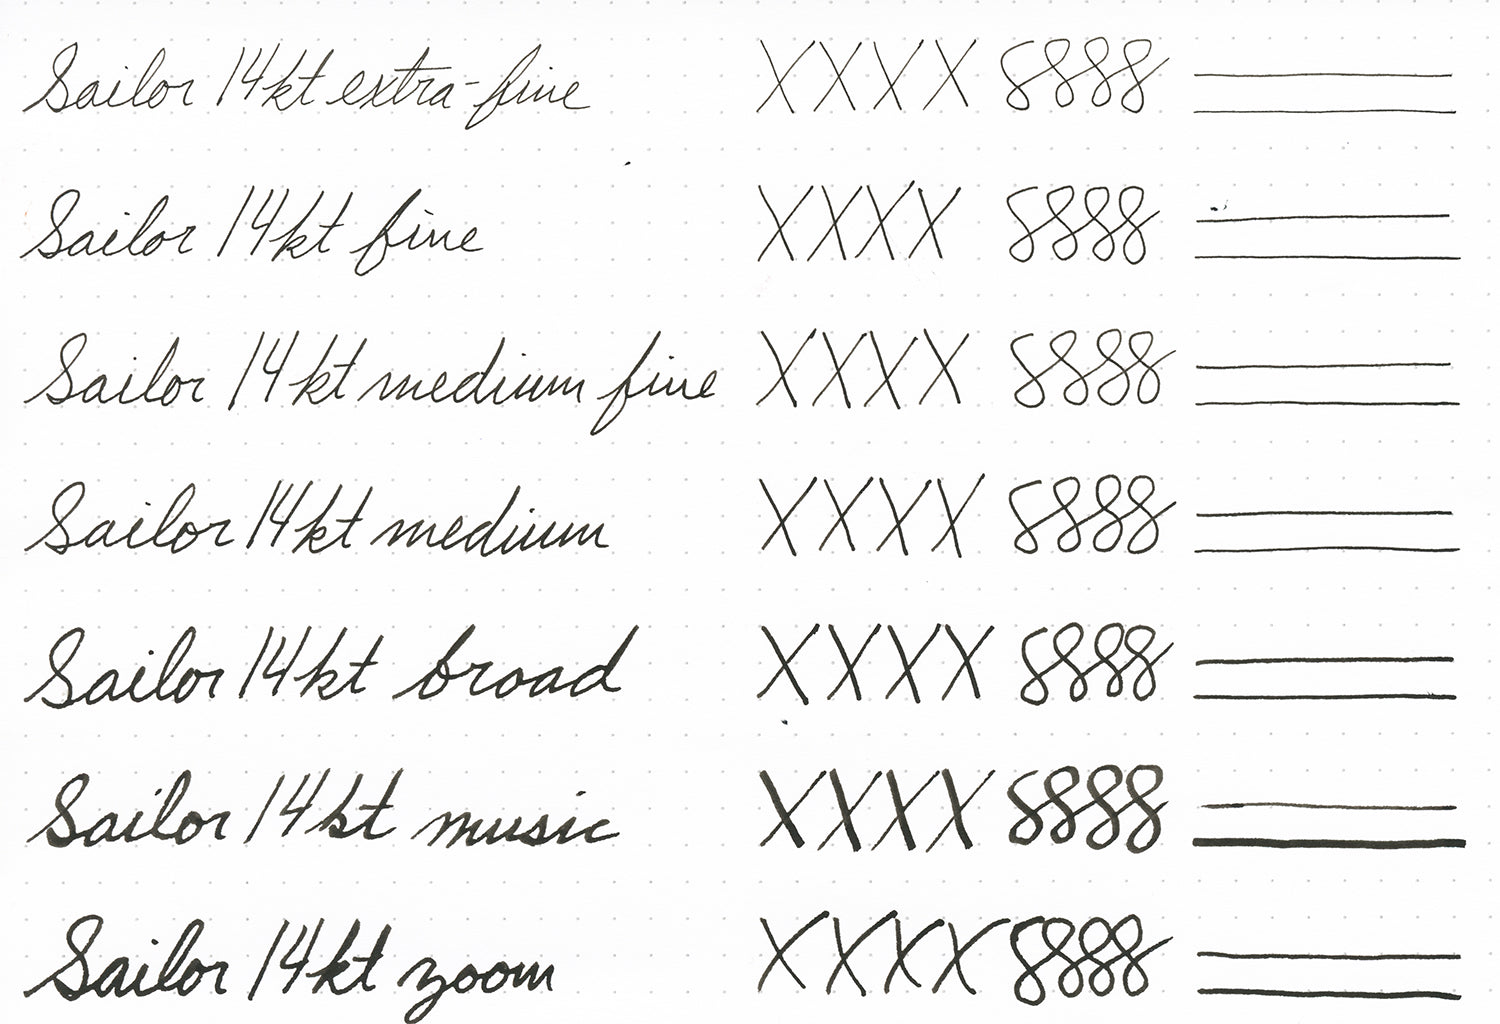 Sailor 14kt extra-fine XXXX 8888
Sailor 14kt fine XXXX 8888
Sailor 14kt medium fine XXXX 8888
Sailor 14kt medium XXXX 8888
Sailor 14kt broad XXXX 8888
Sailor 14kt music XXXX 8888
Sailor 14kt zoom XXXX 8888